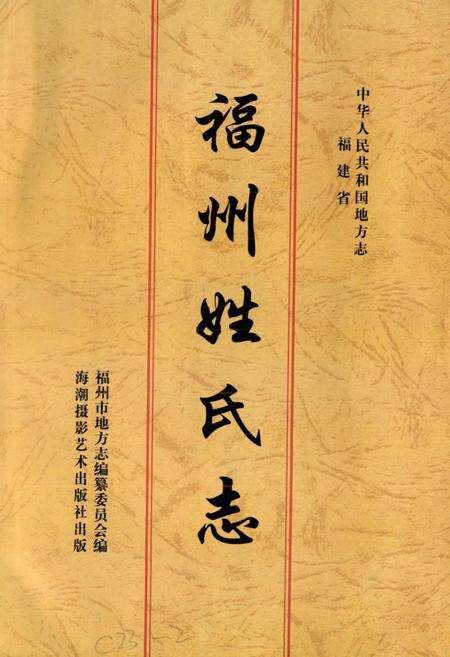 中华人民共和国地方志
福建省
福州姓氏志
福州市地方志编纂委员会编
海潮摄影艺术出版社出版